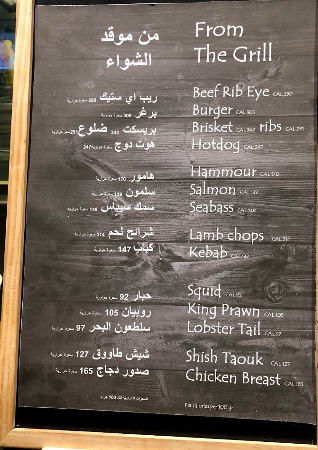 من موقد
الشواء
From
The Grill
ريب اي ستيك 280 سعرة حرارية
Beef Rib Eye CAL 280
برغر 305 سعرة حرارية
Burger CAL 305
بريسكت 342 سعرة حرارية ضلوع 291 سعرة حرارية
Brisket CAL 342 ribs CAL 291
هوت دوج 247 سعرة حرارية
Hotdog CAL 247
هامور 170 سعرة حرارية
Hammour CAL 170
سلمون 139 سعرة حرارية
Salmon CAL 139
سمك سيباس 148 سعرة حرارية
Seabass CAL 148
شرائح لحم 314 سعرة حرارية
Lamb chops CAL 314
كباب 147 سعرة حرارية
Kebab CAL 147
حبار 92 سعرة حرارية
Squid CAL 92
روبيان 105 سعرة حرارية
King Prawn CAL 105
سلطعون البحر 97 سعرة حرارية
Lobster Tail CAL 97
شيش طاووق 127 سعرة حرارية
Shish Taouk CAL 127
صدور دجاج 165 سعرة حرارية
Chicken Breast CAL 165
السعرات الحرارية لكل 100 جرام